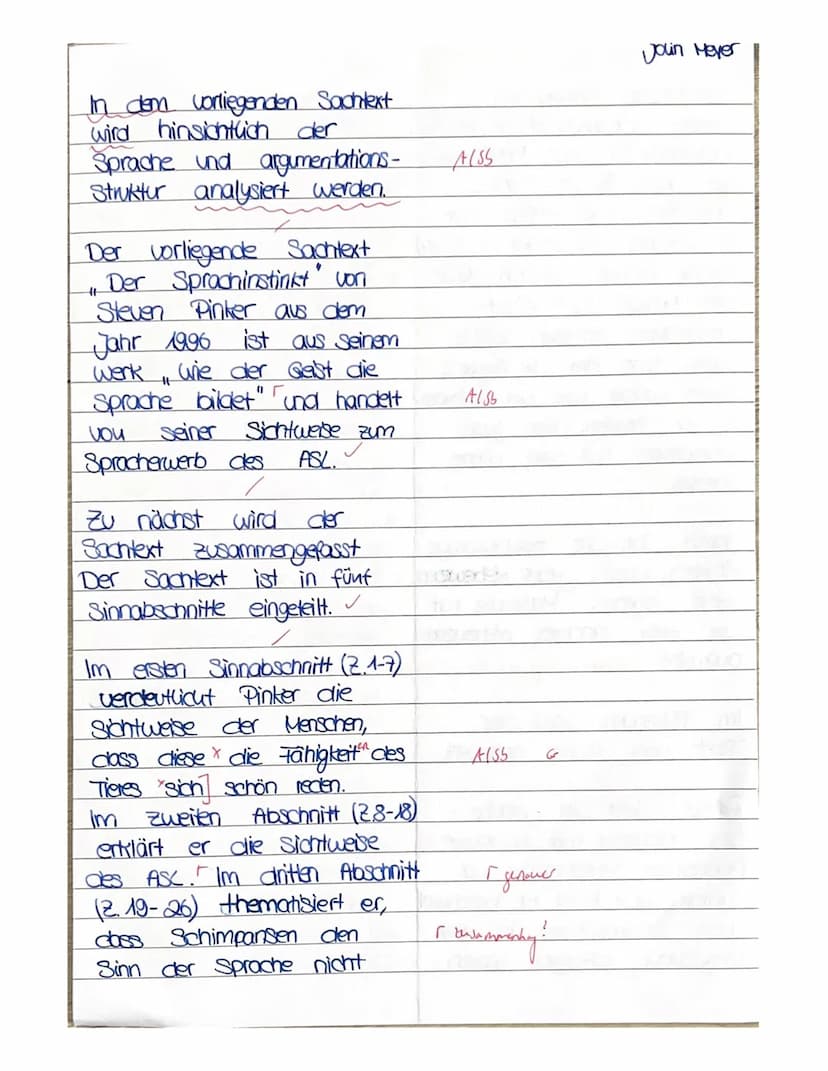 Jolin Meyer
In dem vorliegenden Sachtext
wird hinsichtlich der
Sprache und argumentations- A/Sb
struktur analysiert werden.
Der vorliegende Sachtext
„Der Sprachinstinkt" von
Steven Pinker aus dem
Jahr 1996 ist aus seinem
Werk „Wie der Geist die
Sprache bildet" und handelt A/Sb
von seiner Sichtweise zum
Spracherwerb des ASL. ✓
Zu nächst wird der
Sachtext zusammengefasst
Der Sachtext ist in fünf
Sinnabschnitte eingeteilt. ✓
Im ersten Sinnabschnitt (Z.1-7)
verdeutlicht Pinker die
Sichtweise der Menschen,
dass diese x die Fähigkeit en des A/Sb G
Tieres x sich] schön reden.
Im zweiten Abschnitt (Z.8-18)
erklärt er die Sichtweise
des ASL. Γ Im dritten Abschnitt Γ genauer
(Z. 19-26) thematisiert er,
dass Schimpansen den Γ Zusammenhang?
Sinn der Sprache nicht